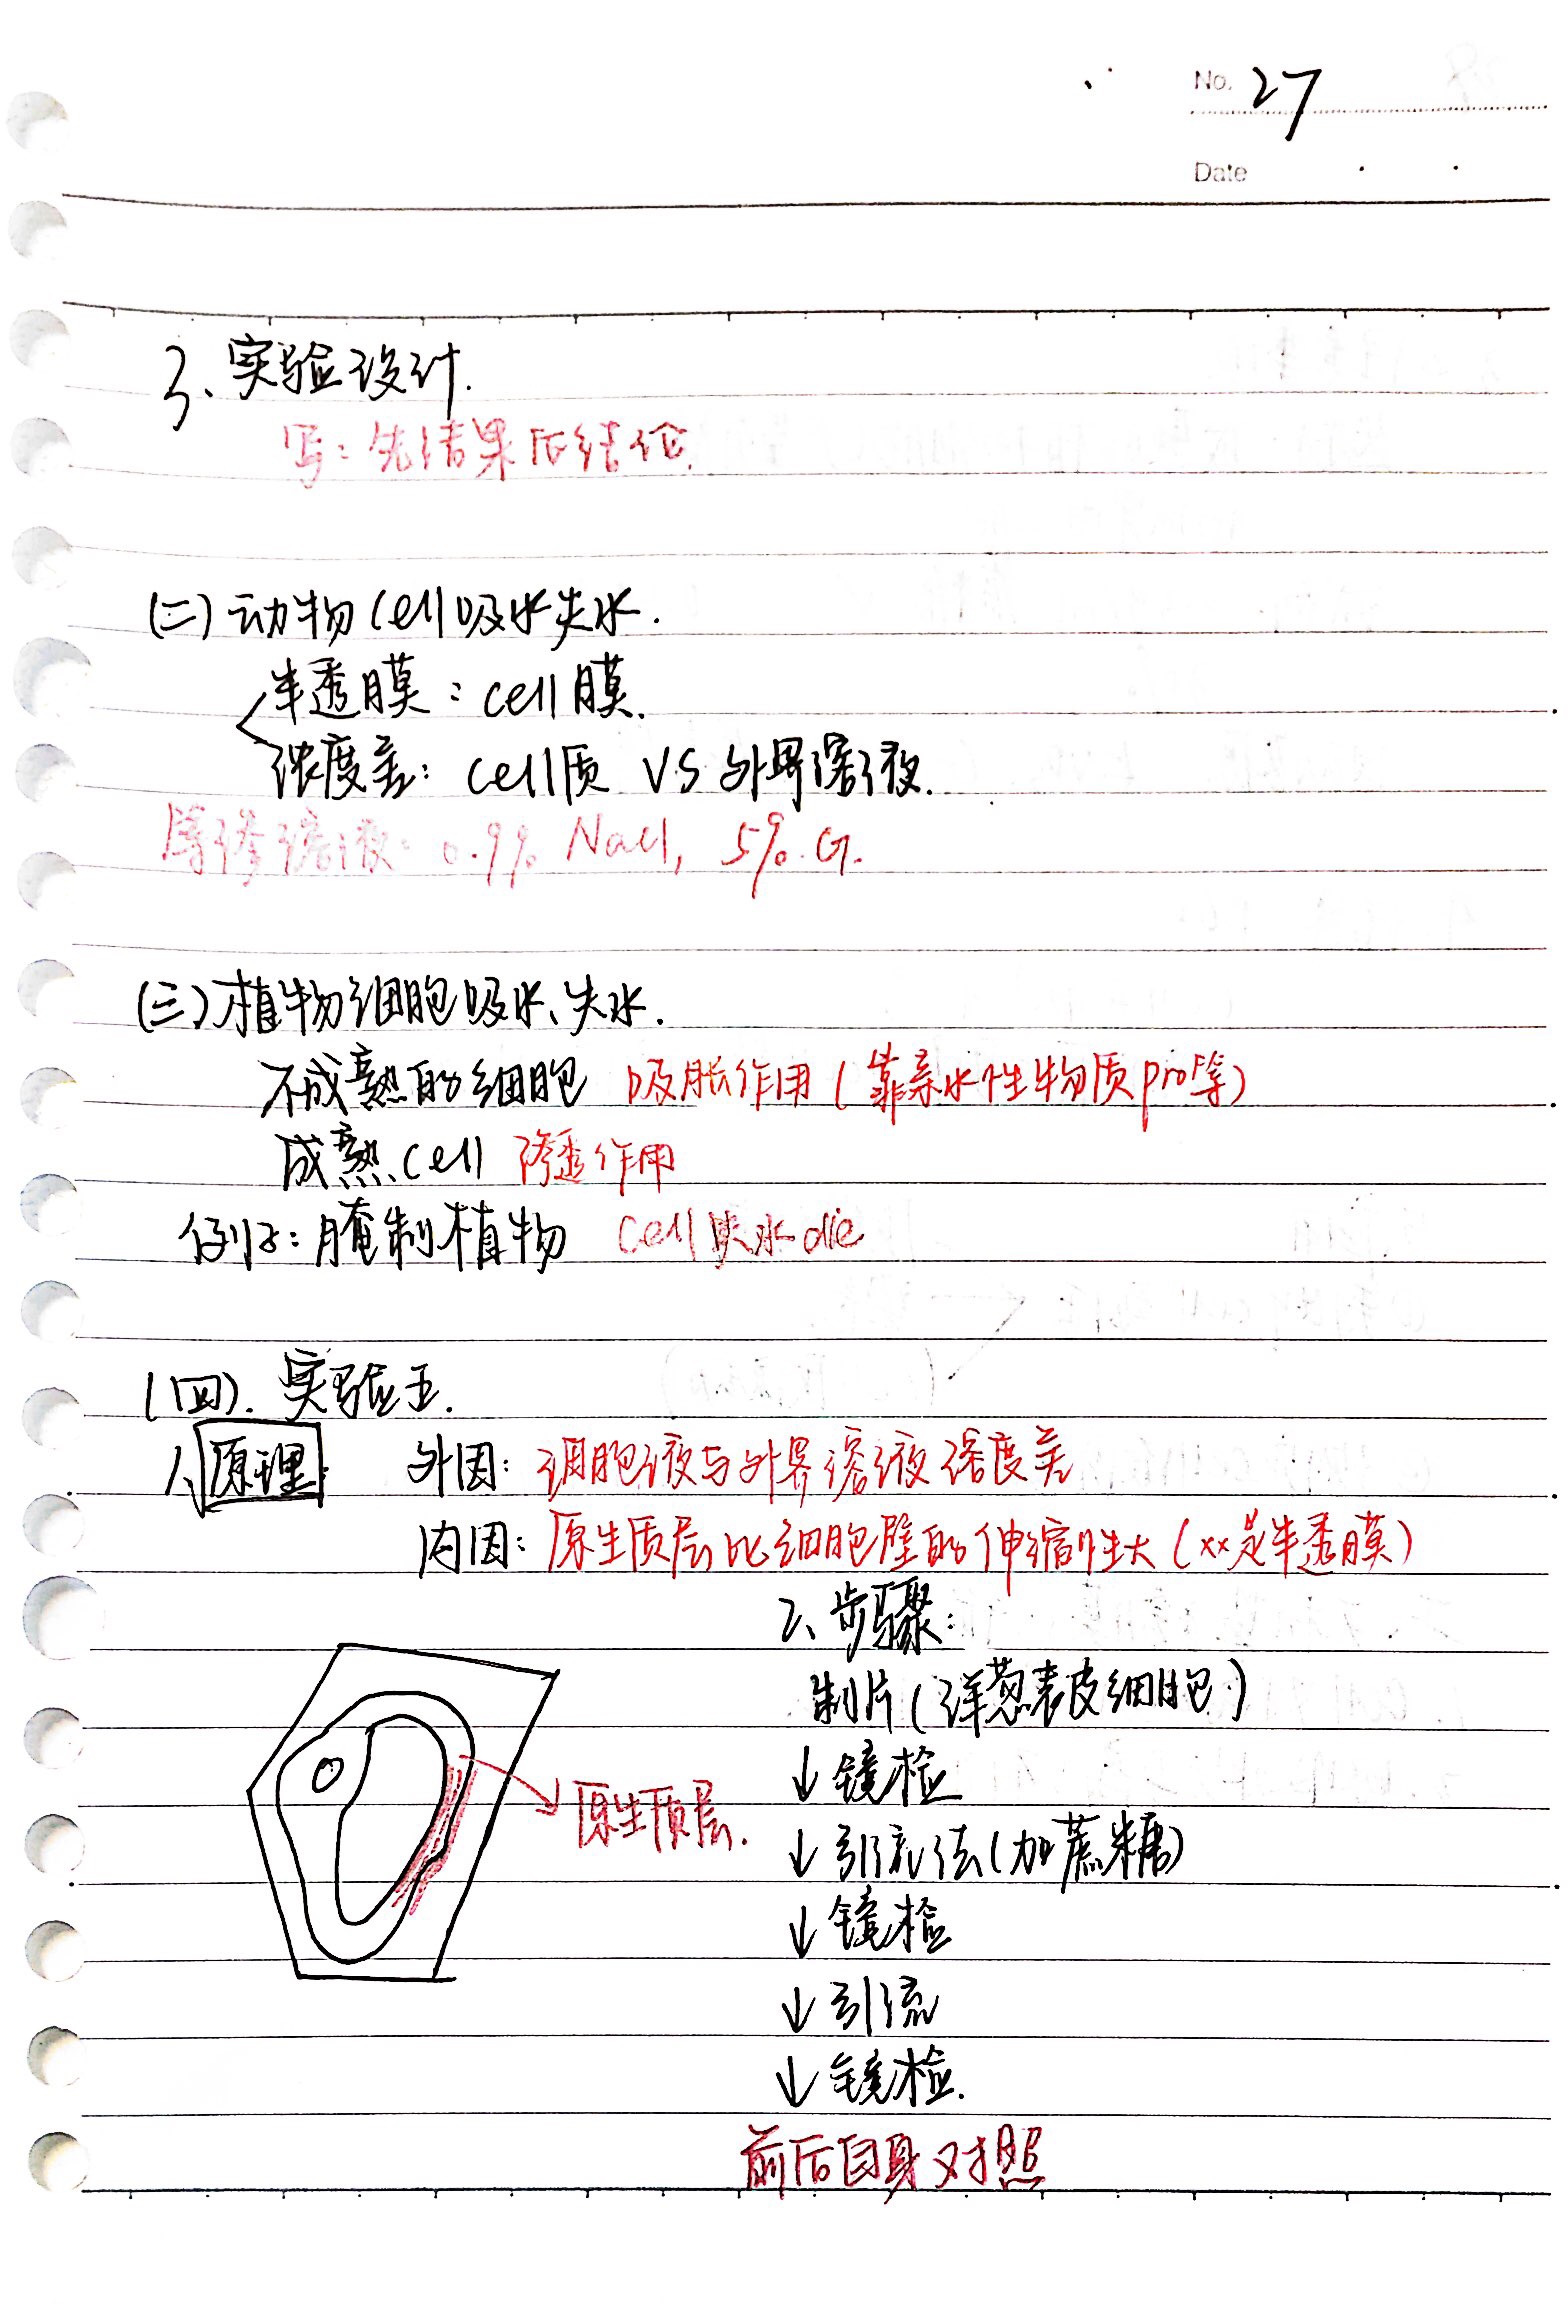 No. 27
Date
3、实验设计.
写：先结果后结论.
(二) 动物cell吸水失水.
半透膜：cell膜.
浓度差：cell质 VS 外界溶液.
等渗溶液：0.9% NaCl, 5% G.
(三) 植物细胞吸水、失水.
不成熟的细胞 吸胀作用 (靠亲水性物质pro等)
成熟cell 渗透作用
例子：腌制植物 cell失水die
(四). 实验五.
1、原理 外因：细胞液与外界溶液浓度差
内因：原生质层比细胞壁的伸缩性大 (xx是半透膜)
2、步骤：
制片 (洋葱表皮细胞)
↓ 镜检
原生质层.
↓ 引流法 (加蔗糖)
↓ 镜检
↓ 引流
↓ 镜检.
前后自身对照